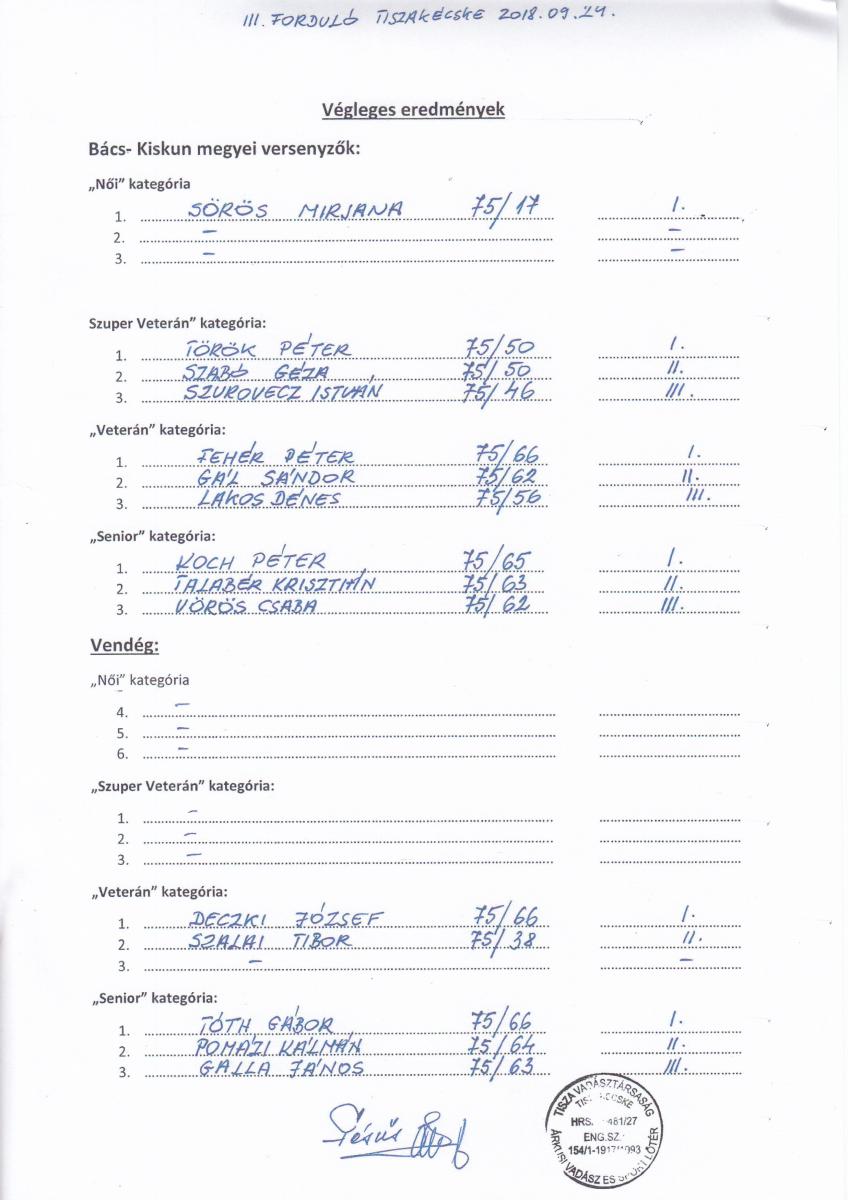 III. FORDULÓ TISZAKÉCSKE 2018.09.24.
Végleges eredmények
Bács- Kiskun megyei versenyzők:
„Női” kategória
1. SÖRÖS MIRJANA 75/17 I.
2. – –
3. – –
Szuper Veterán” kategória:
1. TÖRÖK PÉTER 75/50 I.
2. SZABÓ GÉZA 75/50 II.
3. SZUROVECZ ISTVÁN 75/46 III.
„Veterán” kategória:
1. FEHÉR PÉTER 75/66 I.
2. GÁL SÁNDOR 75/62 II.
3. LAKOS DÉNES 75/56 III.
„Senior” kategória:
1. KOCH PÉTER 75/65 I.
2. TALABÉR KRISZTIÁN 75/63 II.
3. VÖRÖS CSABA 75/62 III.
Vendég:
„Női” kategória
4. –
5. –
6. –
„Szuper Veterán” kategória:
1. –
2. –
3. –
„Veterán” kategória:
1. DECZKI JÓZSEF 75/66 I.
2. SZALAI TIBOR 75/38 II.
3. – –
„Senior” kategória:
1. TÓTH GÁBOR 75/66 I.
2. POMÁZI KÁLMÁN 75/64 II.
3. GALLA JÁNOS 75/63 III.
TISZA VADÁSZTÁRSASÁG
HRS. 481/27
ENG.SZ.
154/1-191
VADÁSZ ÉS LŐTÉR